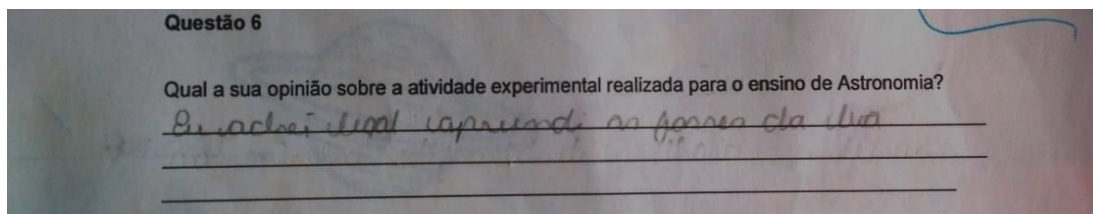 Questão 6
Qual a sua opinião sobre a atividade experimental realizada para o ensino de Astronomia?
Eu achei legal aprendi as fases da lua